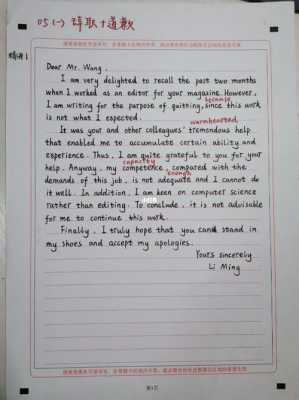 05(一) 辞取+道歉
精讲1
Dear Mr. Wang.
I am very delighted to recall the past two months
when I worked as an editor for your magazine. However,
because
I am writing for the purpose of quitting, since this work
is not what I expected.
warmhearted
It was your and other colleagues' tremendous help
that enabled me to accumulate certain ability and
experience. Thus, I am quite grateful to you for your
capacity
help. Anyway, my competence, compared with the
enough
demands of this job, is not adequate and I cannot do
it well. In addition, I am keen on computer science
rather than editing. To conclude, it is not advisable
for me to continue this work.
Finally, I truly hope that you can stand in
my shoes and accept my apologies.
Yours sincerely
Li Ming